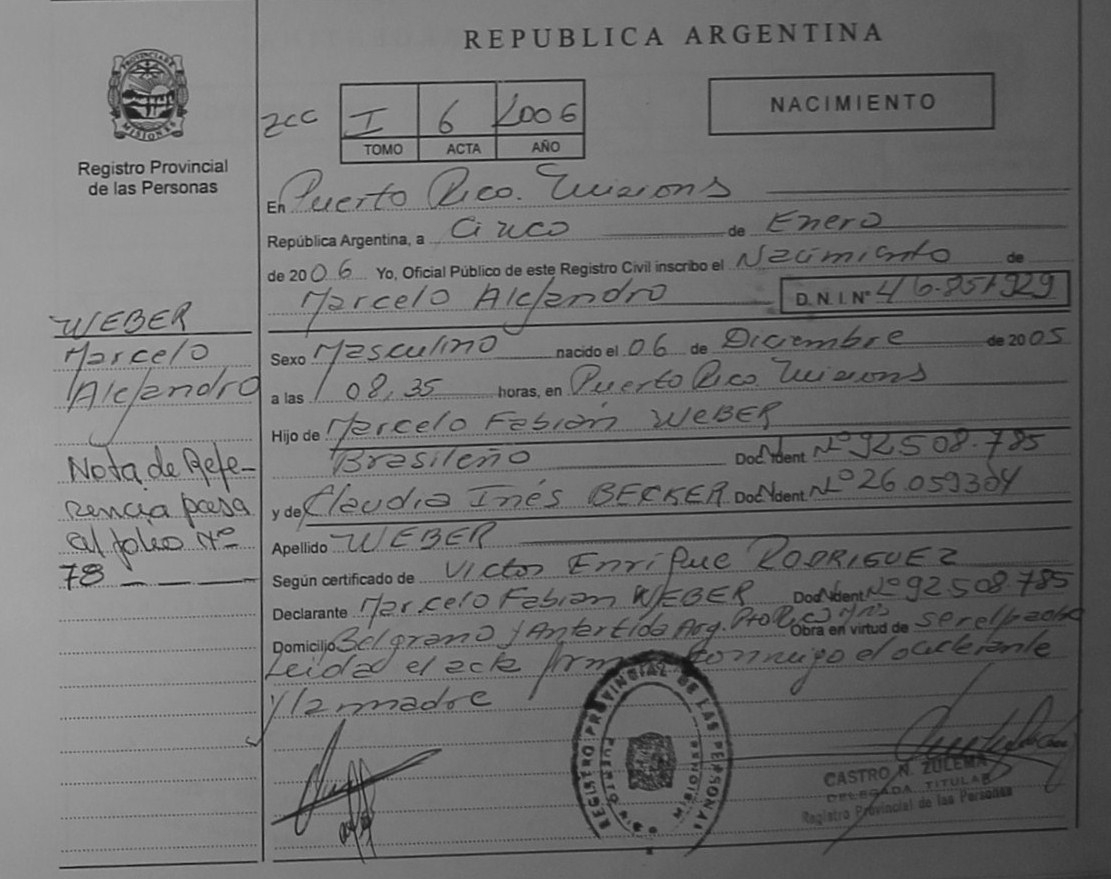 REPUBLICA ARGENTINA
PROVINCIA DE MISIONES
Registro Provincial
de las Personas
zcc I 6 2006
TOMO ACTA AÑO
NACIMIENTO
En Puerto Rico. Misions
República Argentina, a Cinco de Enero
de 2006 Yo, Oficial Público de este Registro Civil inscribo el Nacimiento de
Marcelo Alejandro D. N. I. Nº 46.851929
Sexo Masculino nacido el 06 de Diciembre de 2005
a las 08,35 horas, en Puerto Rico. Misions
Hijo de Marcelo Fabián WEBER
Brasileño Doc. Ident. Nº 92.508.785
y de Claudia Inés BECKER Doc. Ident. Nº 26.059304
Apellido WEBER
Según certificado de Victor Enrique RODRIGUEZ
Declarante Marcelo Fabian WEBER Doc. Ident. Nº 92.508.785
Domicilio Belgrano y Antartida Arg. Pto Rico Mns Obra en virtud de ser el padre
Leida el acta conmigo el declarante
y la madre
WEBER
Marcelo
Alejandro
Nota de Refe-
rencia pasa
al folio Nº
78
REGISTRO PROVINCIAL DE LAS PERSONAS
PUERTO RICO
MISIONES
CASTRO N. ZULEMA
DELEGADA TITULAR
Registro Provincial de las Personas